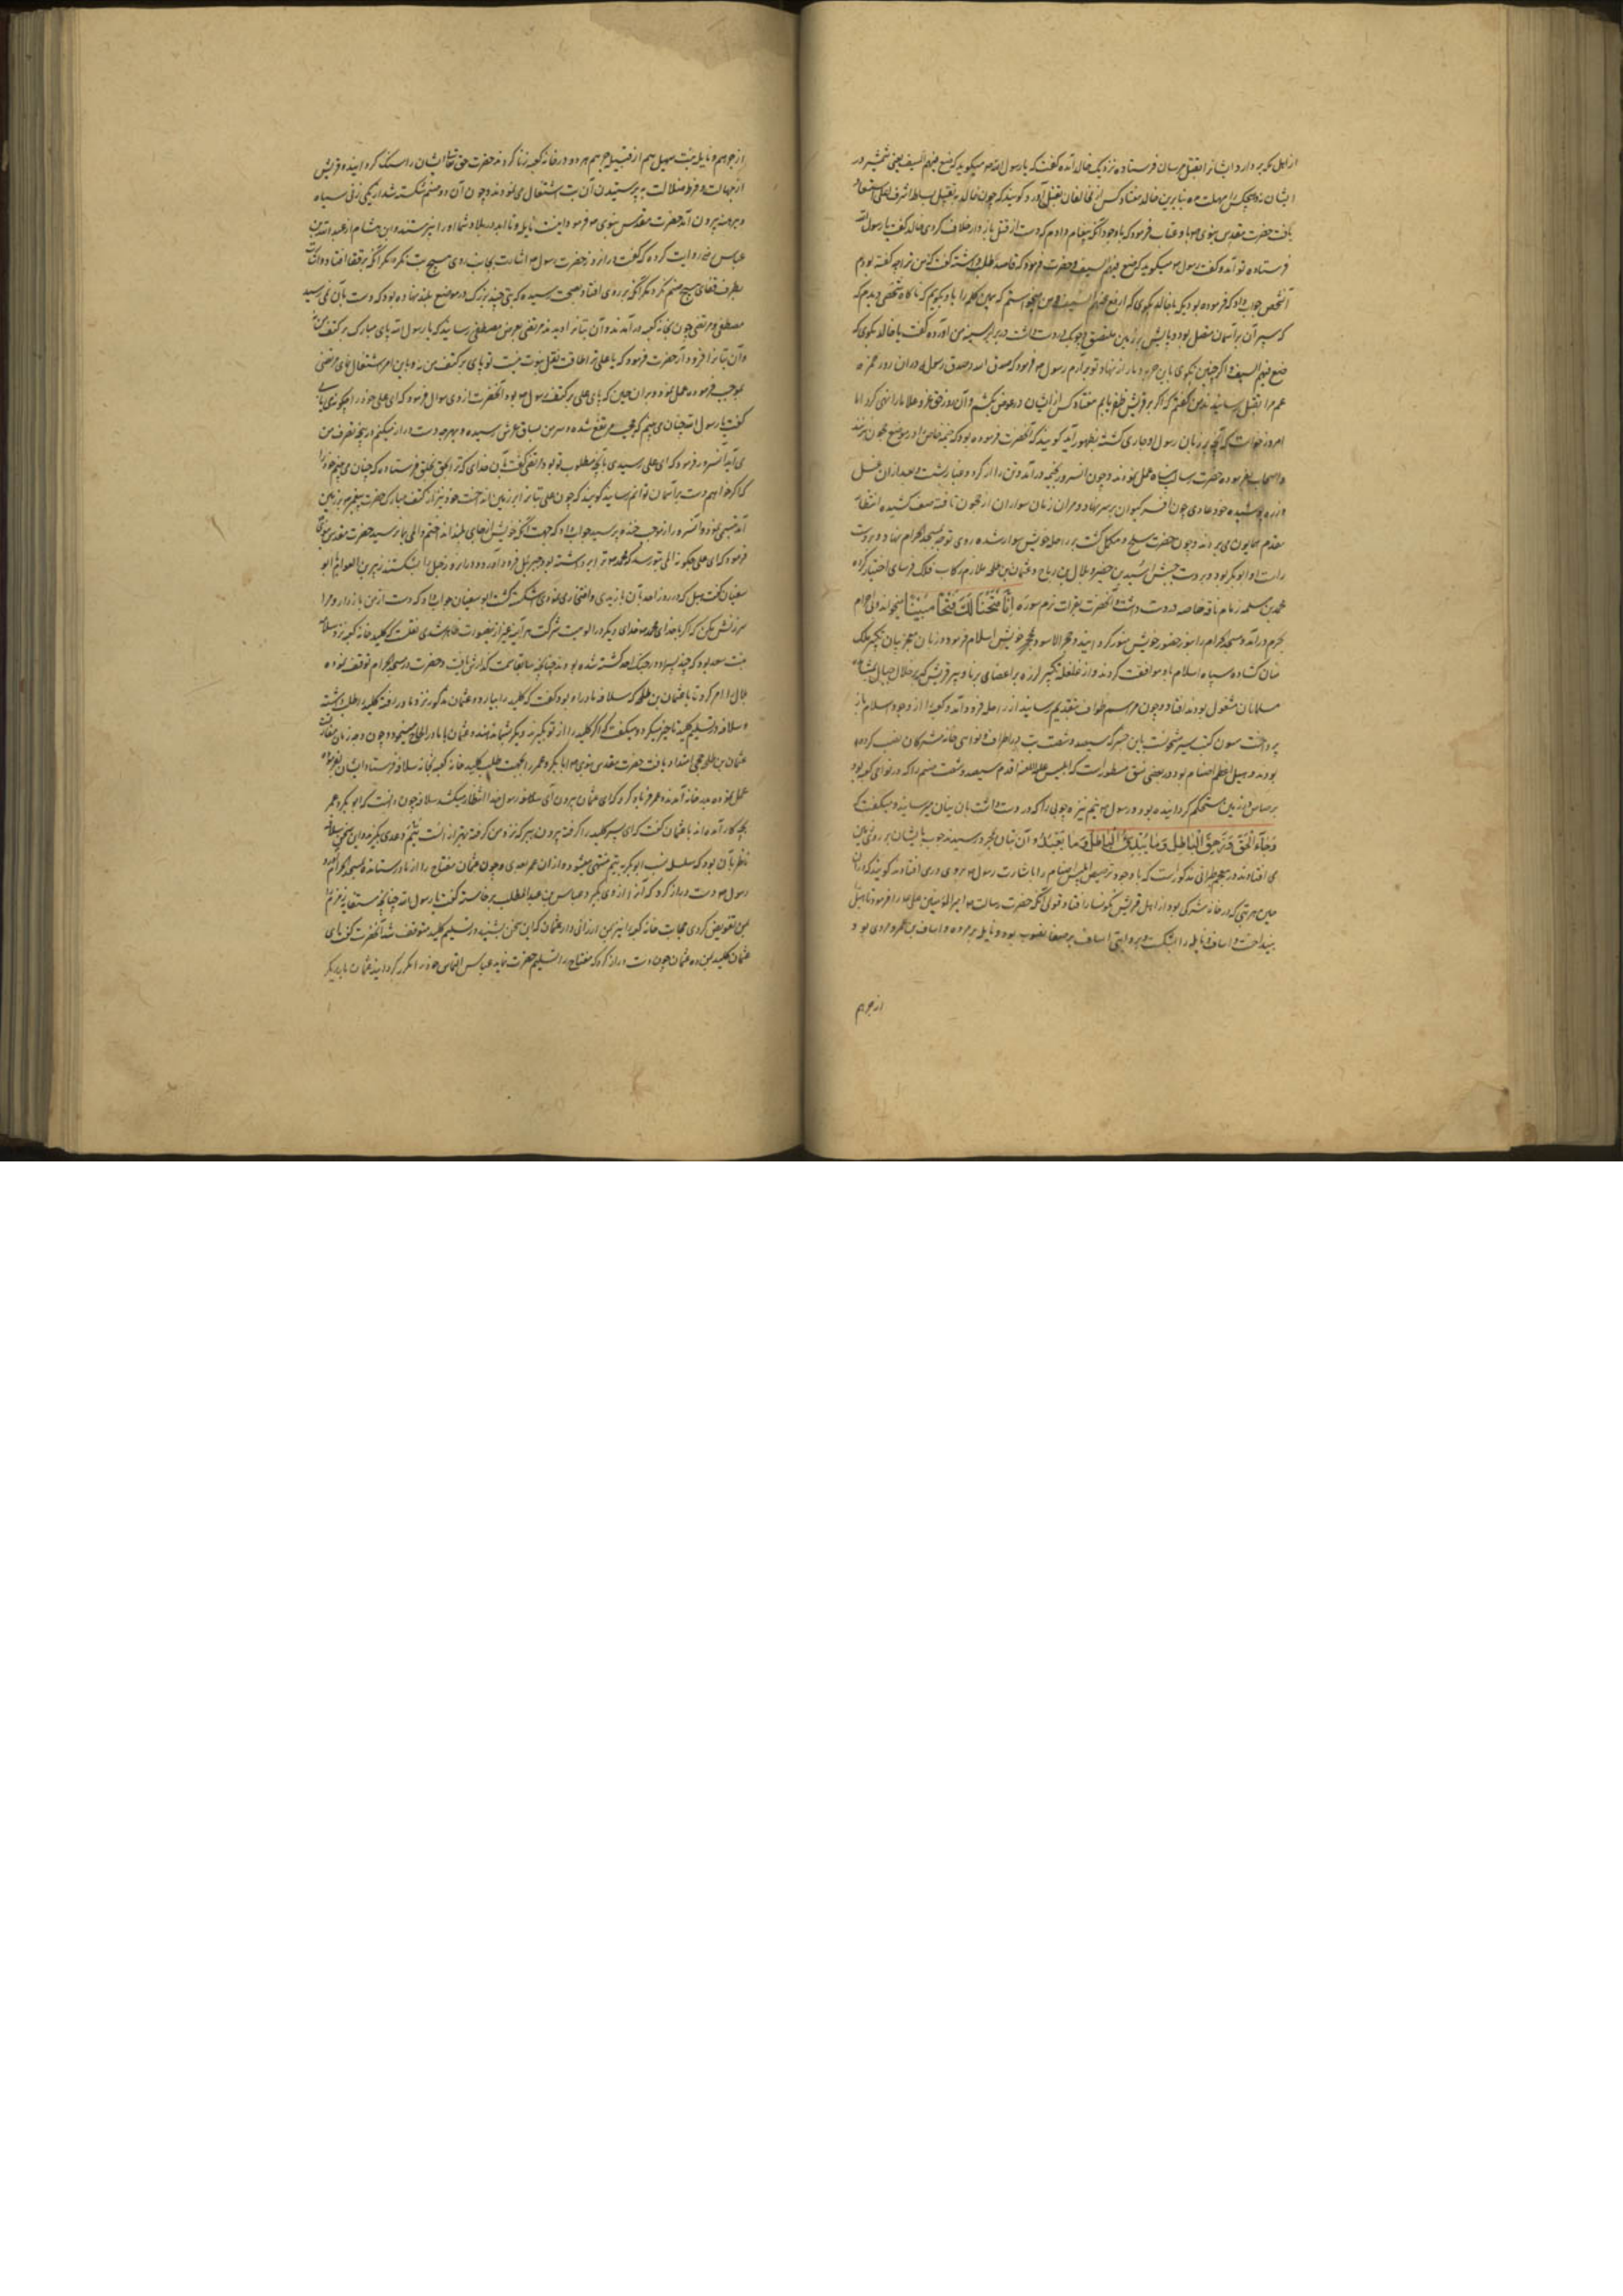 از اهل مکه بردار و ایشانرا بقتل مرسان فرستاده نزدیک خالد آمده گفت که یا رسول الله صم میگوید که ضع فیهم السیف یعنی شمشیر در
ایشان نه و هیچکس را مهلت مده بنابرین خالد هفتاد کس از مخالفان بقتل آورد و گویند که چون خالد به تقبیل بساط اشرف اعلی استسعاد
یافت حضرت مقدس نبوی صم با او عتاب فرمود که باوجود آنکه پیغام دادم که دست از قتل باز دار خلاف کردی خالد گفت یا رسول الله
فرستاده تو آمد و گفت رسول صم میگوید که ضع فیهم السیف حضرت فرمود که قاصد را طلب داشته گفت که من ترا چه گفته بودم
آنشخص جواب داد که فرموده بودی که با خالد بگوی که ارفع عنهم السیف و من میخواستم که همین کلمه را با او بگویم که ناگاه شخصی دیدم که
که سر آن بر آسمان متصل بود و پایش بر زمین ملتصق و حربه در دست داشت در برابر سینه من آورده گفت با خالد بگوی که
ضع فیهم السیف و اگر چنین نگوی باین حربه دمار از نهاد تو برآرم رسول صم فرمود که صدق الله و صدق رسوله دران روز حمزه
عم مرا بقتل رسانیدند من گفتم که اگر بر قریش ظفر یابم هفتاد کس از ایشان در عوض بکشم و آن روز حق عز و علا مارا نهی کرد اما
امروز خواست که آنچه بر زبان رسول او جاری گشته بظهور آید گویند که آنحضرت فرموده بود که خیمه خاص او در موضع حجون بزنند
و اصحاب بفرموده حضرت رسالت پناه عمل نمودند و چون آنسرور بخیمه درآمد و تن را از گرد و غبار بشست و بعد ازان غسل
و زره پوشیده خود عادی چون افسر کیوان بر سر نهاد و مران زمان سواران از حجون تا خندمه صف کشیده انتظار
مقدم همایون می بردند و چون حضرت مسلح و مکمل گشت بر راحله خویش سوار شده روی توجه بمسجد الحرام نهاد و بر دست
راست او ابوبکر بود و بر دست چپش اسید بن حضیر و بلال بن رباح و عثمان بن طلحه ملازم رکاب فلک فرسای اختیار کرده
محمد بن مسلمه زمام ناقه خاصه در دست داشت و آنحضرت بقرات نرم سوره اِنَّا فَتَحْنَا لَكَ فَتْحًا مُبِينًا میخواند و بی احرام
بحرم درآمد و مسجد الحرام را بنور حضور خویش منور گردانید و حجر الاسود را بمحجن خویش استلام فرمود و زبان معجز بیان بتکبیر ملک
منان گشاده سپاه اسلام با او موافقت کردند و از غلغله تکبیر لرزه بر اعضای برنا و پیر قریش که بر خلال جبال بمشاهده
مسلمانان مشغول بودند افتاد و چون مراسم طواف بتقدیم رسانید از راحله فرود آمد و کعبه را از وجود اصنام باز
پرداخت متون کتب سیر مشحونست باین خبر که سیصد و شصت بت در اطراف و نواحی خانه مشرکان نصب کرده
بودند و هبل اعظم اصنام بود و در بعضی نسخ مسطور است که ابلیس علیه اللعنه اقدام سیصد و شصت صنم را که در نواحی کعبه بود
برصاص بر زمین مستحکم گردانیده بود و رسول صم بنیم نیزه چوبی را که در دست داشت بان بتان میرسانید و میگفت که
وَجَاءَ الْحَقُّ وَزَهَقَ الْبَاطِلُ وَمَا يُبْدِئُ الْبَاطِلُ وَمَا يُعِيدُ و آن بتان بمجرد رسیدن چوب بایشان بر روی زمین
می افتادند و در معجم طبرانی مذکور است که باوجود ترصیص ابلیس اصنام را باشارت رسول صم بروی در می افتادند گویند که دران
حین هر بتی که در خانه مشرکی بود از اهل قریش نگونسار افتاد و قولی آنکه حضرت رسالت صم امیر المؤمنین علی را فرمود تا هبل
بینداخت و اساف و نایله را بشکست و بروایتی اساف بر صفا منصوب بود و نایله بر مروه و اساف بن عمرو مردی بود
از جرهم
از جرهم و نایله بنت سهیل هم از قبیله جرهم هر دو در خانه کعبه زنا کردند حضرت حق تعالی ایشان را سنگ گردانید و قریش
از جهالت و فرط ضلالت به پرستیدن آن بت اشتغال می نمودند و چون آن دو صنم شکسته شد از یکی زنی سیاه
و برهنه بیرون آمد حضرت مقدس نبوی صم فرمود اینست نایله و تا ابد در بلاد شما او را نپرستند و ابن هشام از عبد الله بن
عباس رض روایت کرده که گفت دران روز حضرت رسول صم اشارت بجانب روی هیچ بت نکرد مگر آنکه بر قفا افتاد و اشارت
بطرف قفای هیچ صنم نکرد مگر آنکه بر روی افتاد و بصحت رسیده که بتی چند بزرگ در موضع بلند نهاده بود که دست بآن نمی رسید
مصطفی و مرتضی چون بخانه کعبه درآمدند و آن بتانرا دیدند مرتضی بعرض مصطفی رسانید که یا رسول الله پای مبارک بر کتف من نه
و آن بتانرا فرود آر حضرت فرمود که یا علی ترا طاقت ثقل نبوت نیست تو پای بر کتف من نه و باین امر اشتغال نمای مرتضی
بموجب فرموده عمل نمود و دران حین که پای علی بر کتف رسول صم بود آنحضرت از وی سوال فرمود که ای علی خود را چگونه می یابی
گفت یا رسول الله چنان می بینم که حجب مرتفع شده و سر من بساق عرش رسیده و بهرچه دست دراز میکنم در پنجه تصرف من
می آید آنسرور فرمود که ای علی رسیدی بآنچه مطلوب تو بود مرتضی گفت بآن خدای که ترا بحق بخلق فرستاده که چنان می بینم خود را
که اگر خواهم دست بر آسمان توانم رسانید گویند که چون علی بتانرا بر زمین انداخت خود نیز از کتف مبارک حضرت پیغمبر صم بزمین
آمد تبسمی نمود و آنسرور از موجب خنده پرسید جواب داد که جهت آنکه خویش از جای بلند انداختم و المی بمن نرسید حضرت مقدس نبوی
فرمود که ای علی چگونه المی بتو رسد که محمد صم ترا برداشته بود و جبرئیل فرود آورد و دران روز هبل را بشکستند زبیر بن العوام با ابو
سفیان گفت هبل که در روز احد بآن بازیدی و افتخار می نمودی شکسته گشت ابو سفیان جواب داد که دست از من باز دار و مرا
سرزنش مکن که اگر با خدای محمد صم خدای دیگر در الوهیت شرکت میداشت غیر ازینصورت ظاهر شدی نقلست که کلید خانه کعبه نزد سلافه
بنت سعد بود که چند پسر او در جنگ احد کشته شده بودند چنانچه سابقا سمت گذارش یافت و حضرت در مسجد الحرام توقف نموده
بلال را امر کرد تا با عثمان بن طلحه که سلافه مادر او بود گفت که کلید را بیار و عثمان مذکور نزد مادر رفته کلید را طلب داشته
و سلافه در تسلیم کلید تاخیر میکرد و میگفت که اگر کلید را از تو بگیرند دیگر بشما ندهند و عثمان با مادر الحاح مینمود و چون
عثمان بن طلحه امتداد یافت حضرت مقدس نبوی صم ابابکر و عمر را بجهت طلب کلید خانه کعبه بخانه سلافه فرستاد ایشان بفرموده
عمل نموده بدر خانه آمدند و عمر فریاد کرد که ای عثمان بیرون آی که رسول خدا انتظار میکشد سلافه چون دانست که ابوبکر و عمر
بچه کار آمده اند با عثمان گفت که ای پسر کلید را گرفته بیرون ببر که نزد من گرفته بهتر از آنست که تیم و عدی بگیرند و این سخن سلافه
ناظر بآن بود که سلسله نسب ابوبکر به تیم منتهی میشود و ازان عمر بعدی و چون عثمان مفتاح را از مادر ستانده بمسجد الحرام آورد
رسول صم دست دراز کرد که آنرا از وی بگیرد عباس بن عبد المطلب برخاسته گفت یا رسول الله چنانچه سقایه زمزم را
بمن تفویض کردی حجابت خانه کعبه را نیز بمن ارزانی دار عثمان که این سخن بشنید در تسلیم کلید متوقف شد آنحضرت گفت ای
عثمان کلید بمن ده عثمان چون دست دراز کرد که مفتاح را تسلیم حضرت نماید عباس التماس خود را مکرر گردانید عثمان بار دیگر